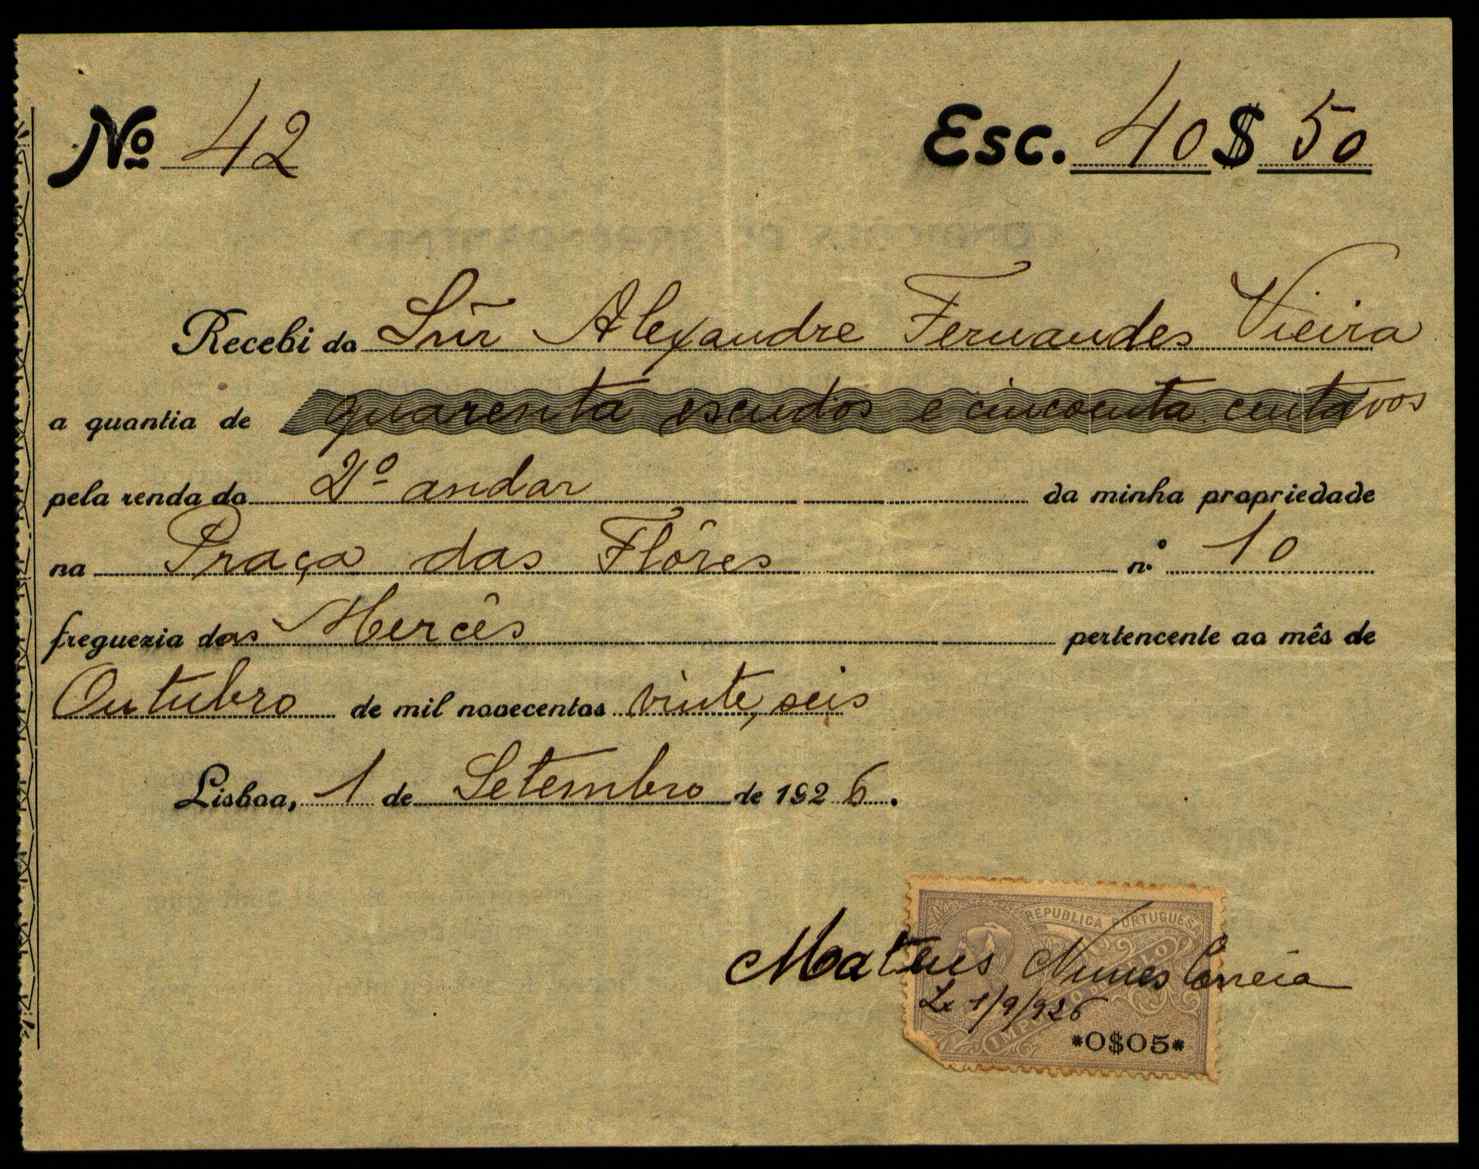 Nº 42 Esc. 40$50
Recebi do Snr̃ Alexandre Fernandes Vieira
a quantia de quarenta escudos e cincoenta centavos
pela renda do 2º andar da minha propriedade
na Praça das Flôres n.º 10
freguezia das Mercês pertencente ao mês de
Outubro de mil novecentos vinte, seis
Lisboa, 1 de Setembro de 1926.
REPUBLICA PORTUGUESA
Mateus Nunes Correia
Lx 1/9/926
*0$05*